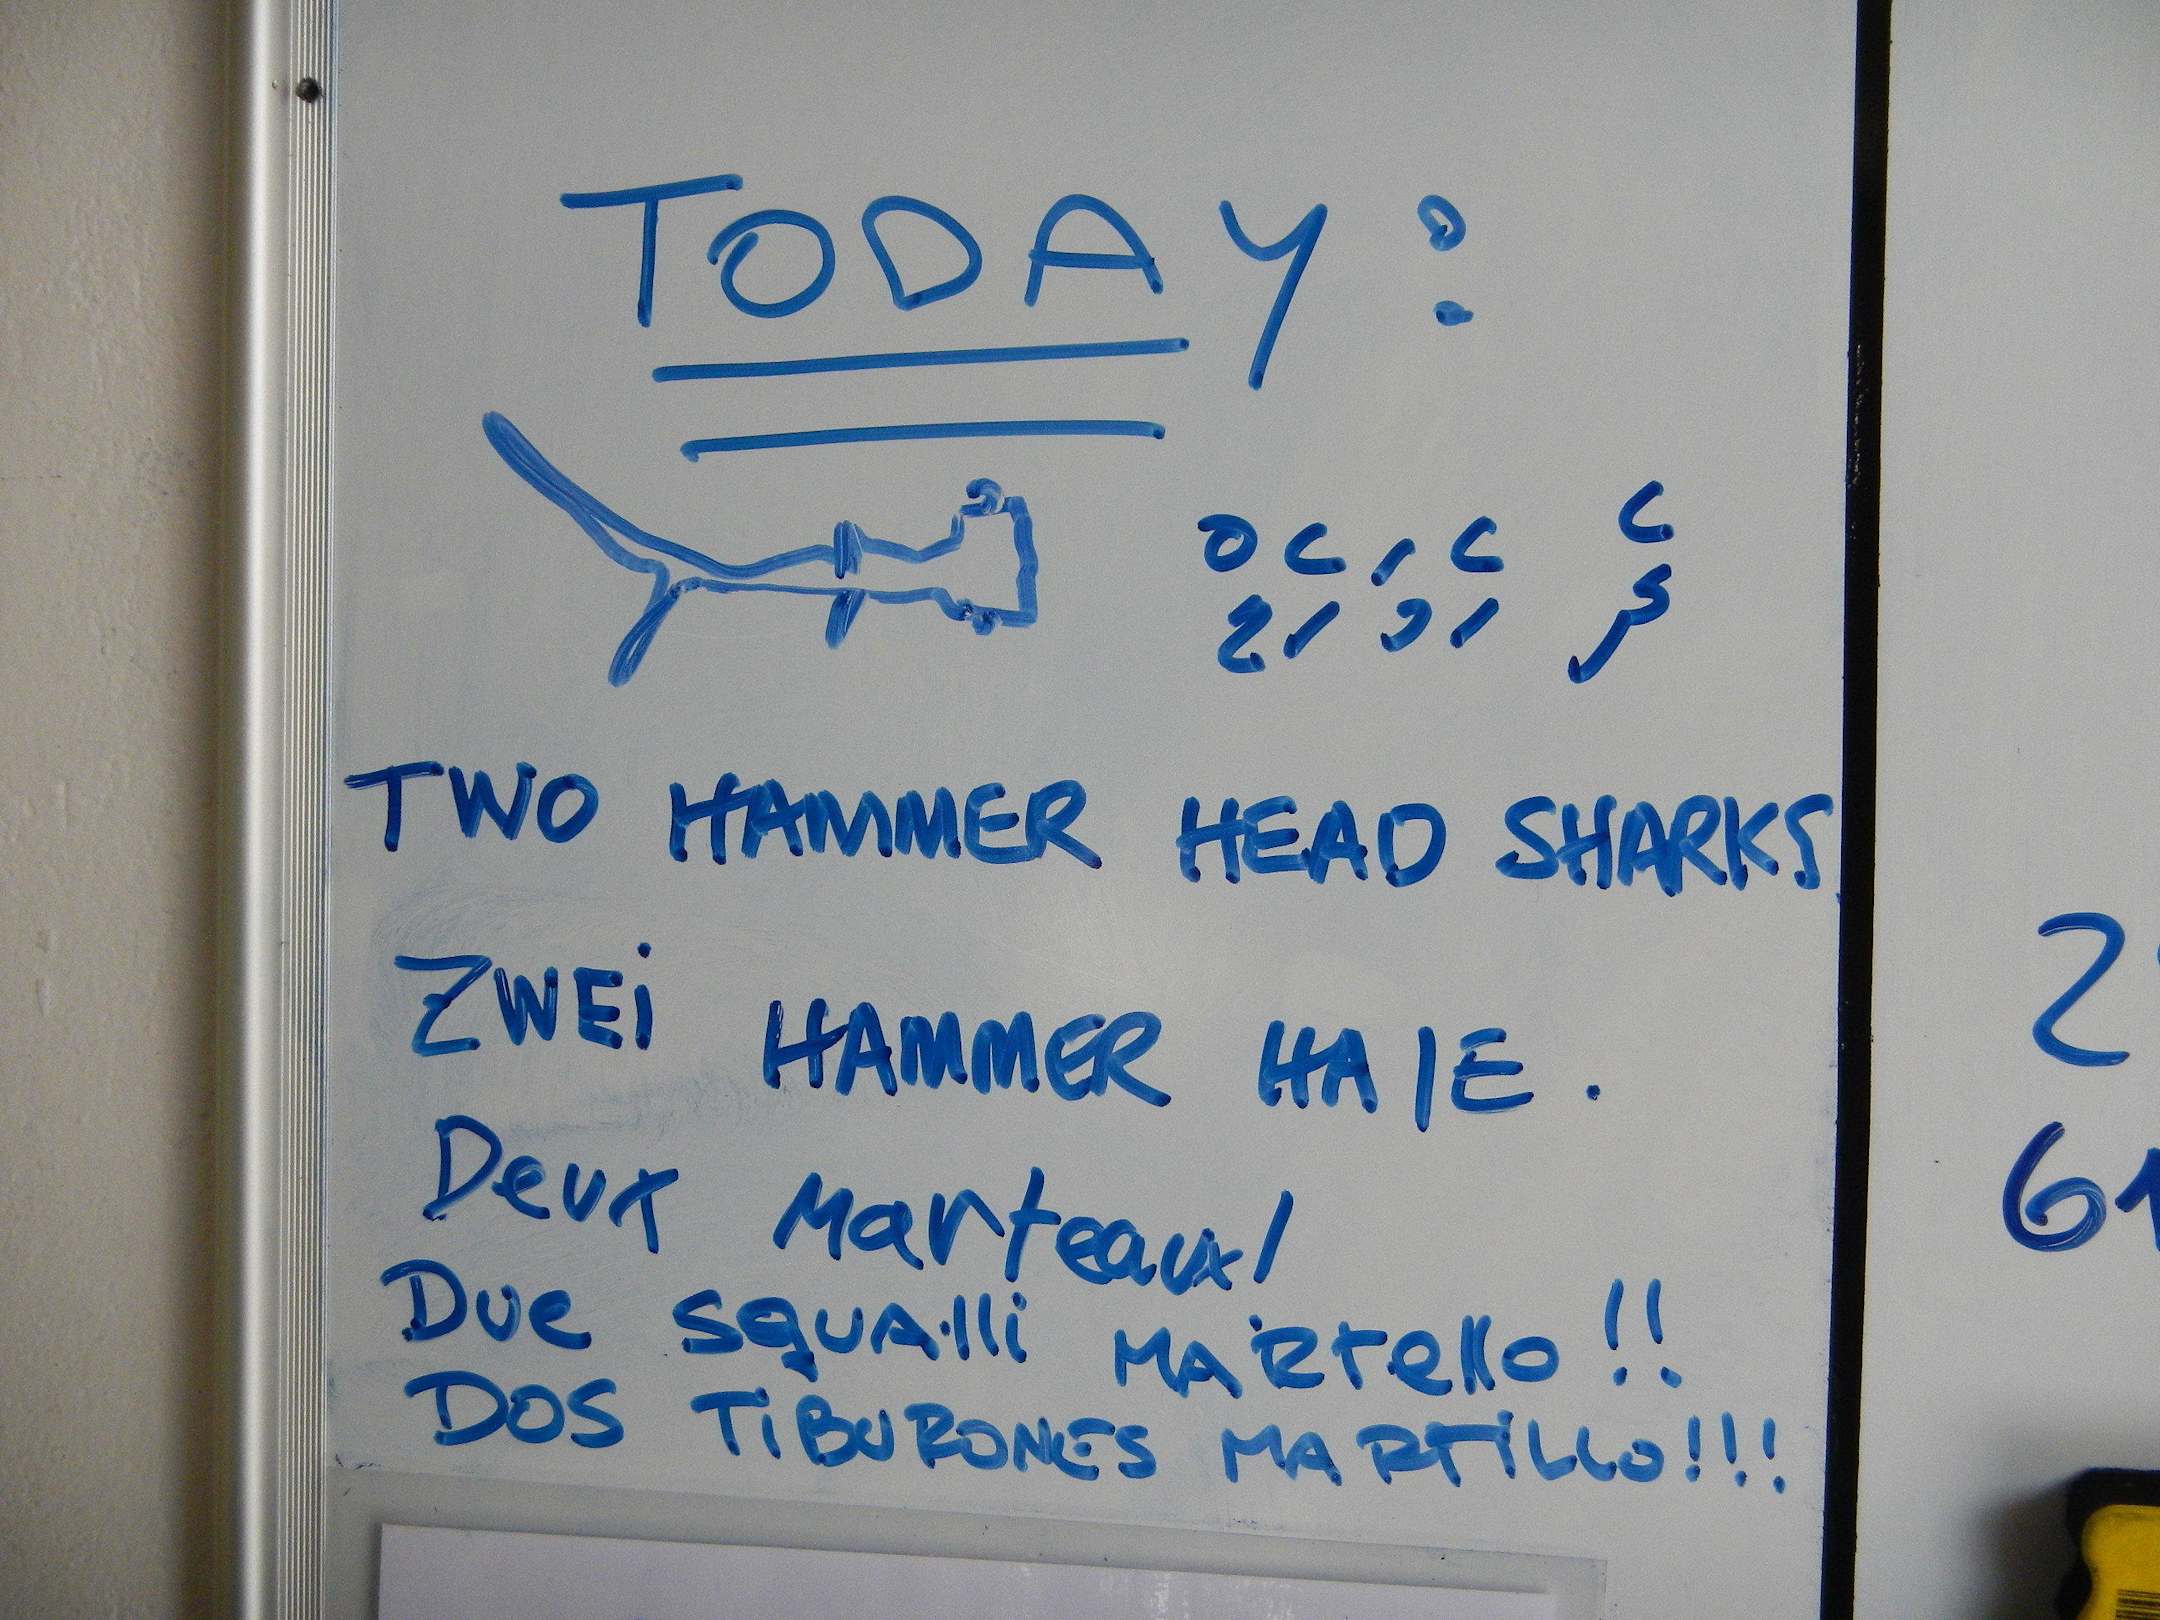 TODAY :
TWO HAMMER HEAD SHARKS
ZWEi HAMMER HAIE .
Deux Marteaux!
Due squAlli MARtello !!
DOS TiBURONES MARTiLLO!!!